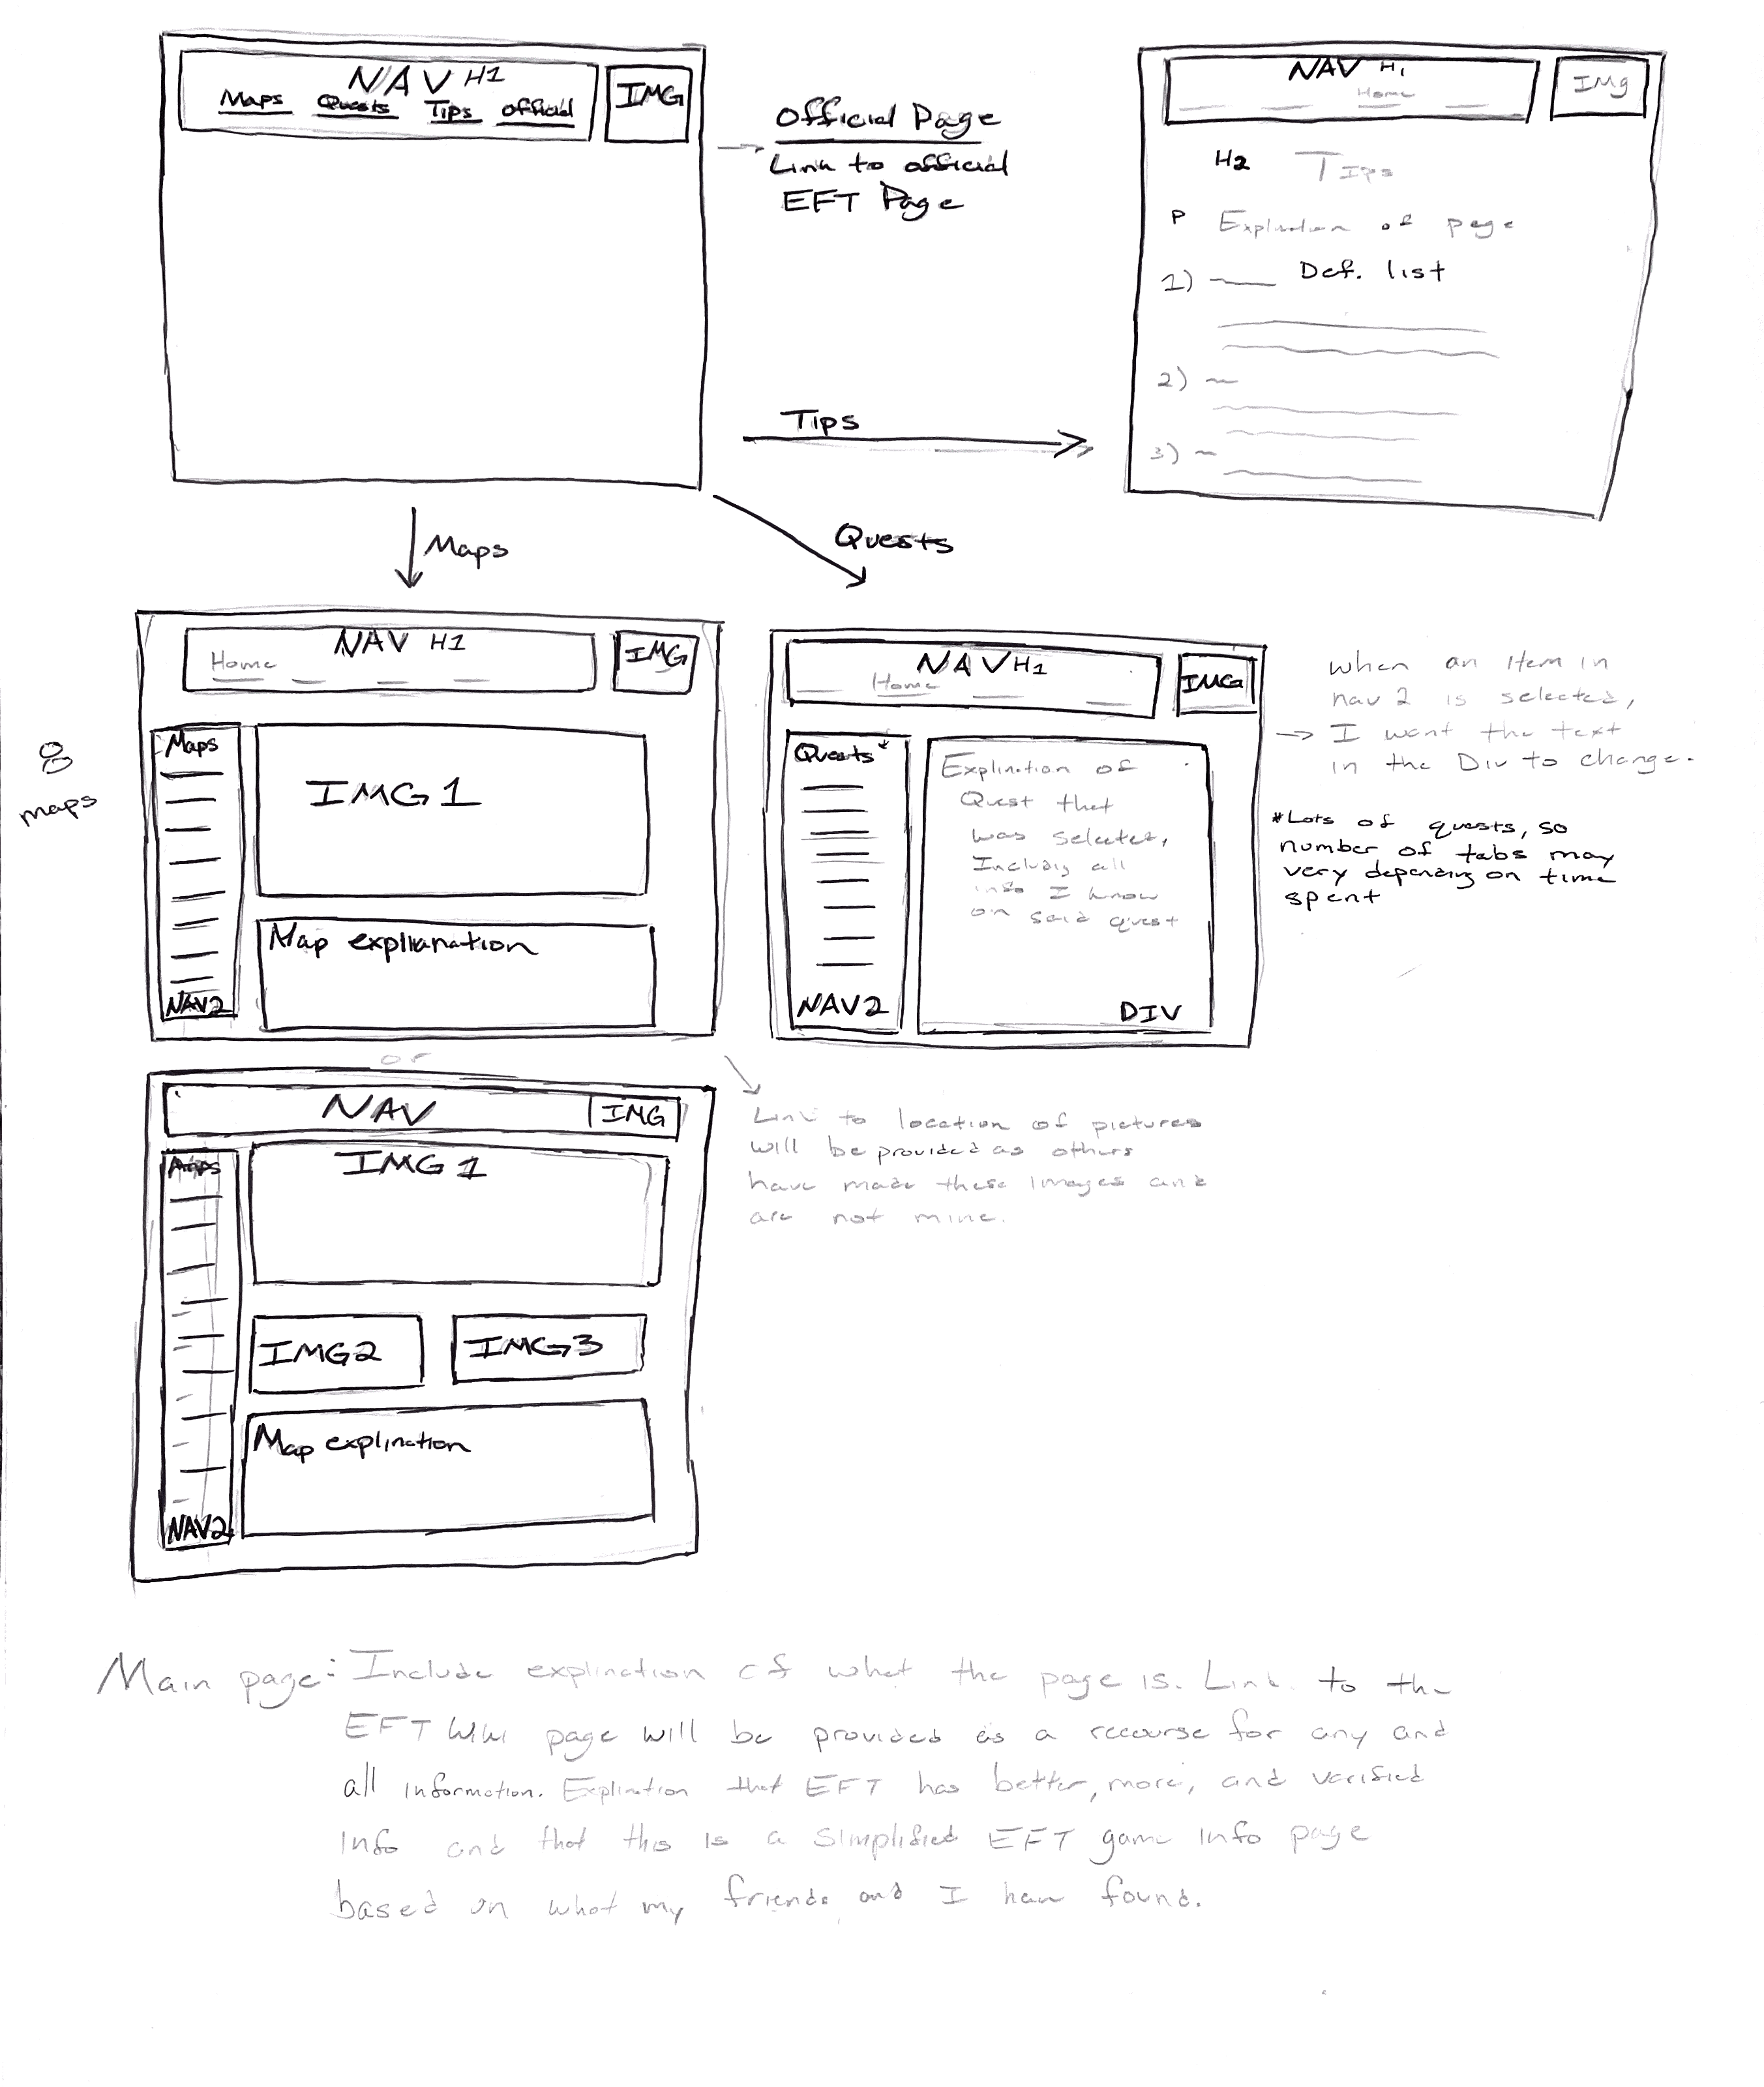 NAV H1
Maps Quests Tips Official
IMG
Official Page
Link to official
EFT Page
NAV H1
Home
IMg
H2 Tips
P Explination of page
1) Def. list
2)
3)
Tips
Maps
Quests
8
maps
NAV H1
Home
IMG
Maps
IMG1
Map explianation
NAV2
NAV H1
Home
IMG
Quests*
Explination of
Quest that
was selected,
Including all
info I know
on said quest
NAV2
DIV
When an item in
nav 2 is selected,
I want the text
in the Div to change.
*Lots of quests, so
number of tabs may
very depending on time
spent
or
NAV
IMG
Maps
IMG1
IMG2
IMG3
Map explination
NAV2
Link to location of pictures
will be provided as others
have made these images and
are not mine.
Main page: Include explination of what the page is. Link to the
EFT Wiki page will be provided as a recourse for any and
all information. Explination that EFT has better, more, and varified
info and that this is a simplified EFT game info page
based on what my friends and I have found.